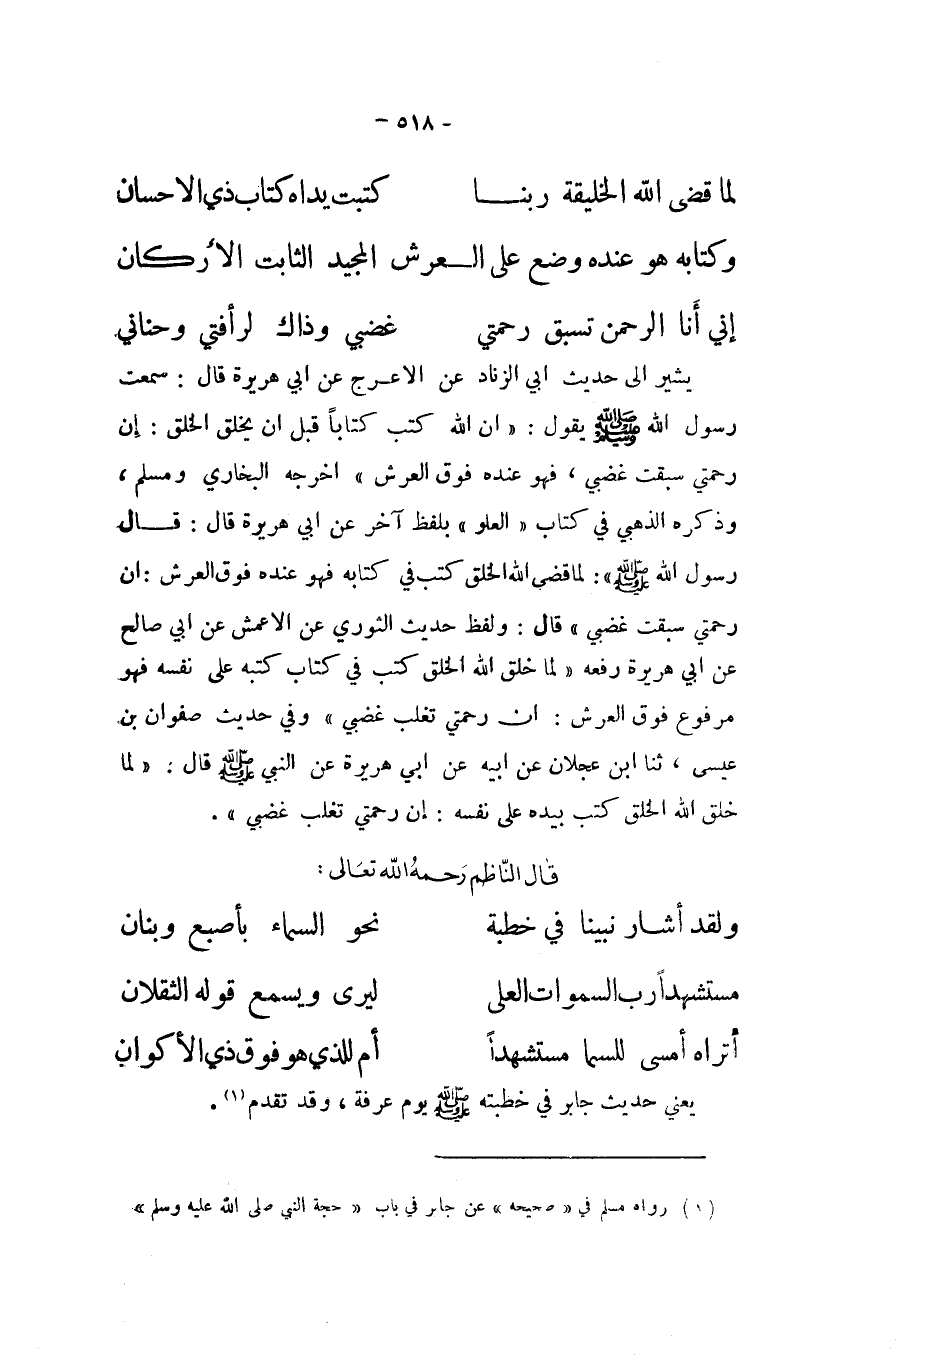 - ٥١٨ -
لما قضى الله الخليقة ربنـــا كتبت يداه كتاب ذي الاحسان
وكتابه هو عنده وضع على الـعرش المجيد الثابت الأركان
إني أنا الرحمن تسبق رحمتي غضبي وذاك لرأفتي وحناني
يشير الى حديث ابي الزناد عن الاعـرج عن ابي هريرة قال : سمعت
رسول الله ﷺ يقول : « ان الله كتب كتاباً قبل ان يخلق الخلق : إن
رحمتي سبقت غضبي ، فهو عنده فوق العرش » اخرجه البخاري ومسلم ،
وذكره الذهبي في كتاب « العلو » بلفظ آخر عن ابي هريرة قال : قـــال
رسول الله ﷺ»: لما قضى الله الخلق كتب في كتابه فهو عنده فوق العرش : ان
رحمتي سبقت غضبي » قال : ولفظ حديث الثوري عن الاعمش عن ابي صالح
عن ابي هريرة رفعه « لما خلق الله الخلق كتب في كتاب كتبه على نفسه فهو
مرفوع فوق العرش : ان رحمتي تغلب غضبي » وفي حديث صفوان بن
عيسى ، ثنا ابن عجلان عن ابيه عن ابي هريرة عن النبي ﷺ قال : « لما
خلق الله الخلق كتب بيده على نفسه : إن رحمتي تغلب غضبي » .
قال الناظم رحمه الله تعالى :
ولقد أشـار نبينا في خطبة نحو السماء بأصبع وبنان
مستشهداً رب السموات العلى ليرى ويسمع قوله الثقلان
أتراه أمسى للسما مستشهداً أم للذي هو فوق ذي الأكوان
يعني حديث جابر في خطبته ﷺ يوم عرفة ، وقد تقدم(١) .
(١) رواه مسلم في « صحيحه » عن جابر في باب « حجة النبي صلى الله عليه وسلم »